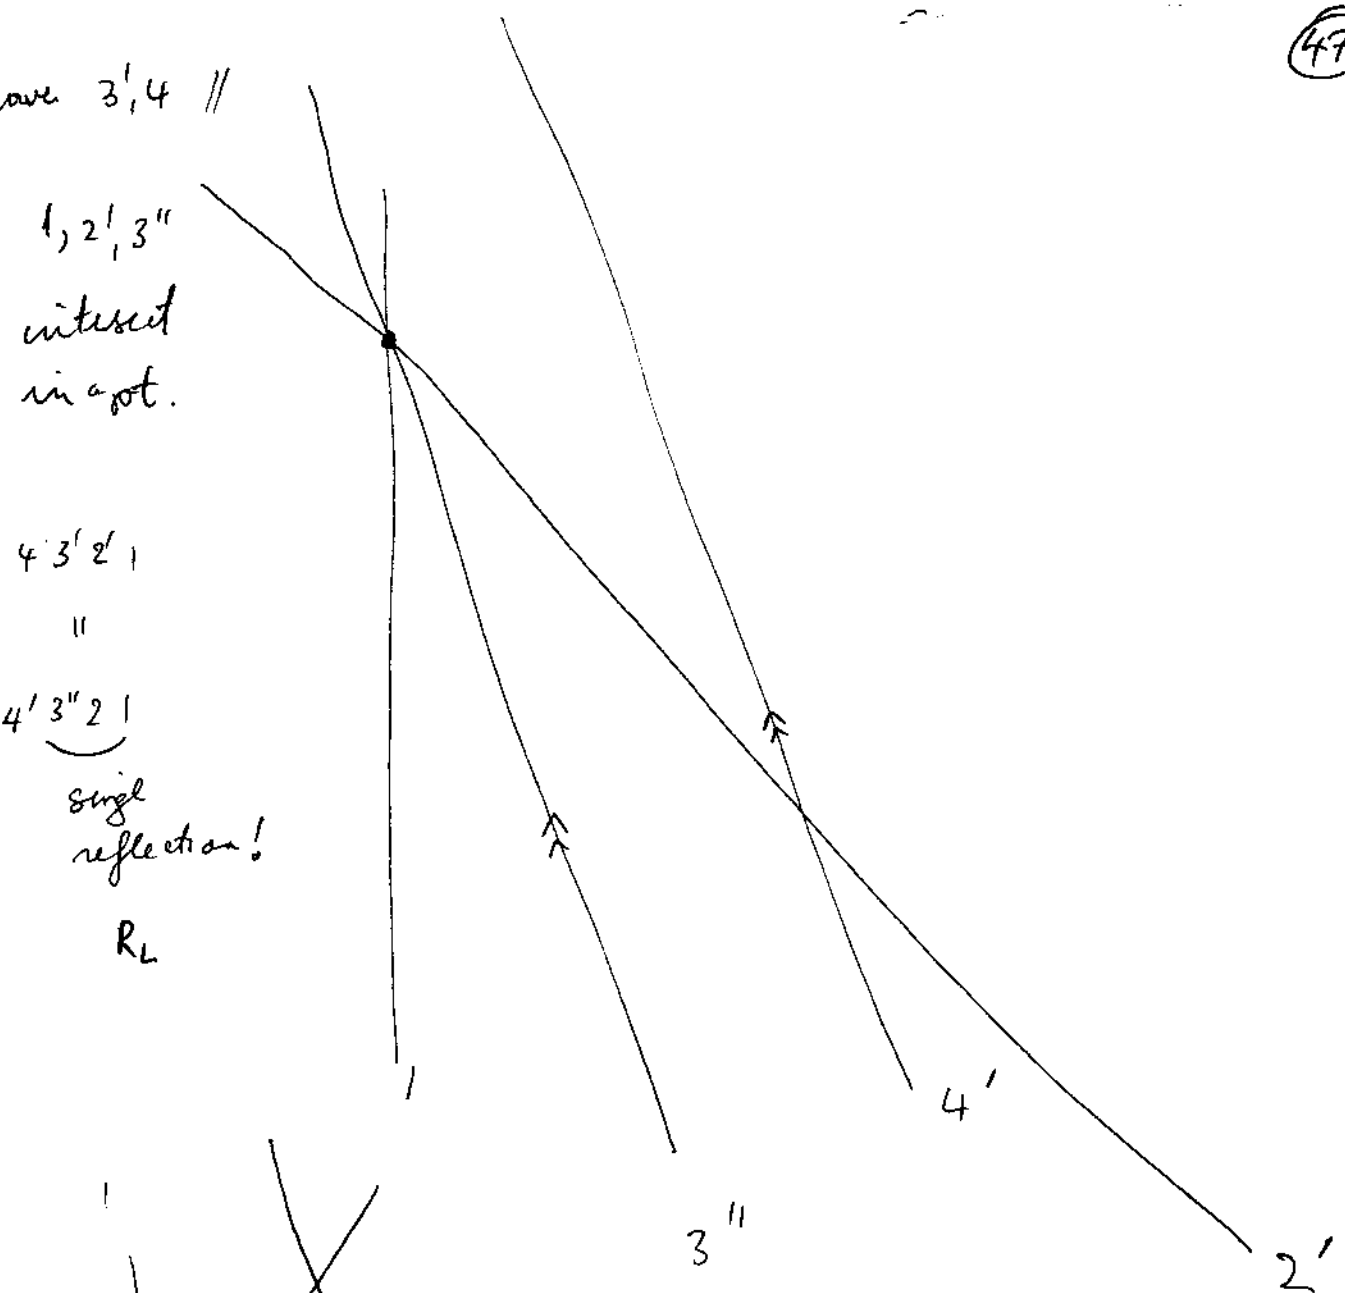 47
3', 4 //
1, 2', 3"
intersect
in a pt.
4 3' 2' 1
"
4' 3" 2 1
singl
reflection!
R_L
1
4'
3"
2'